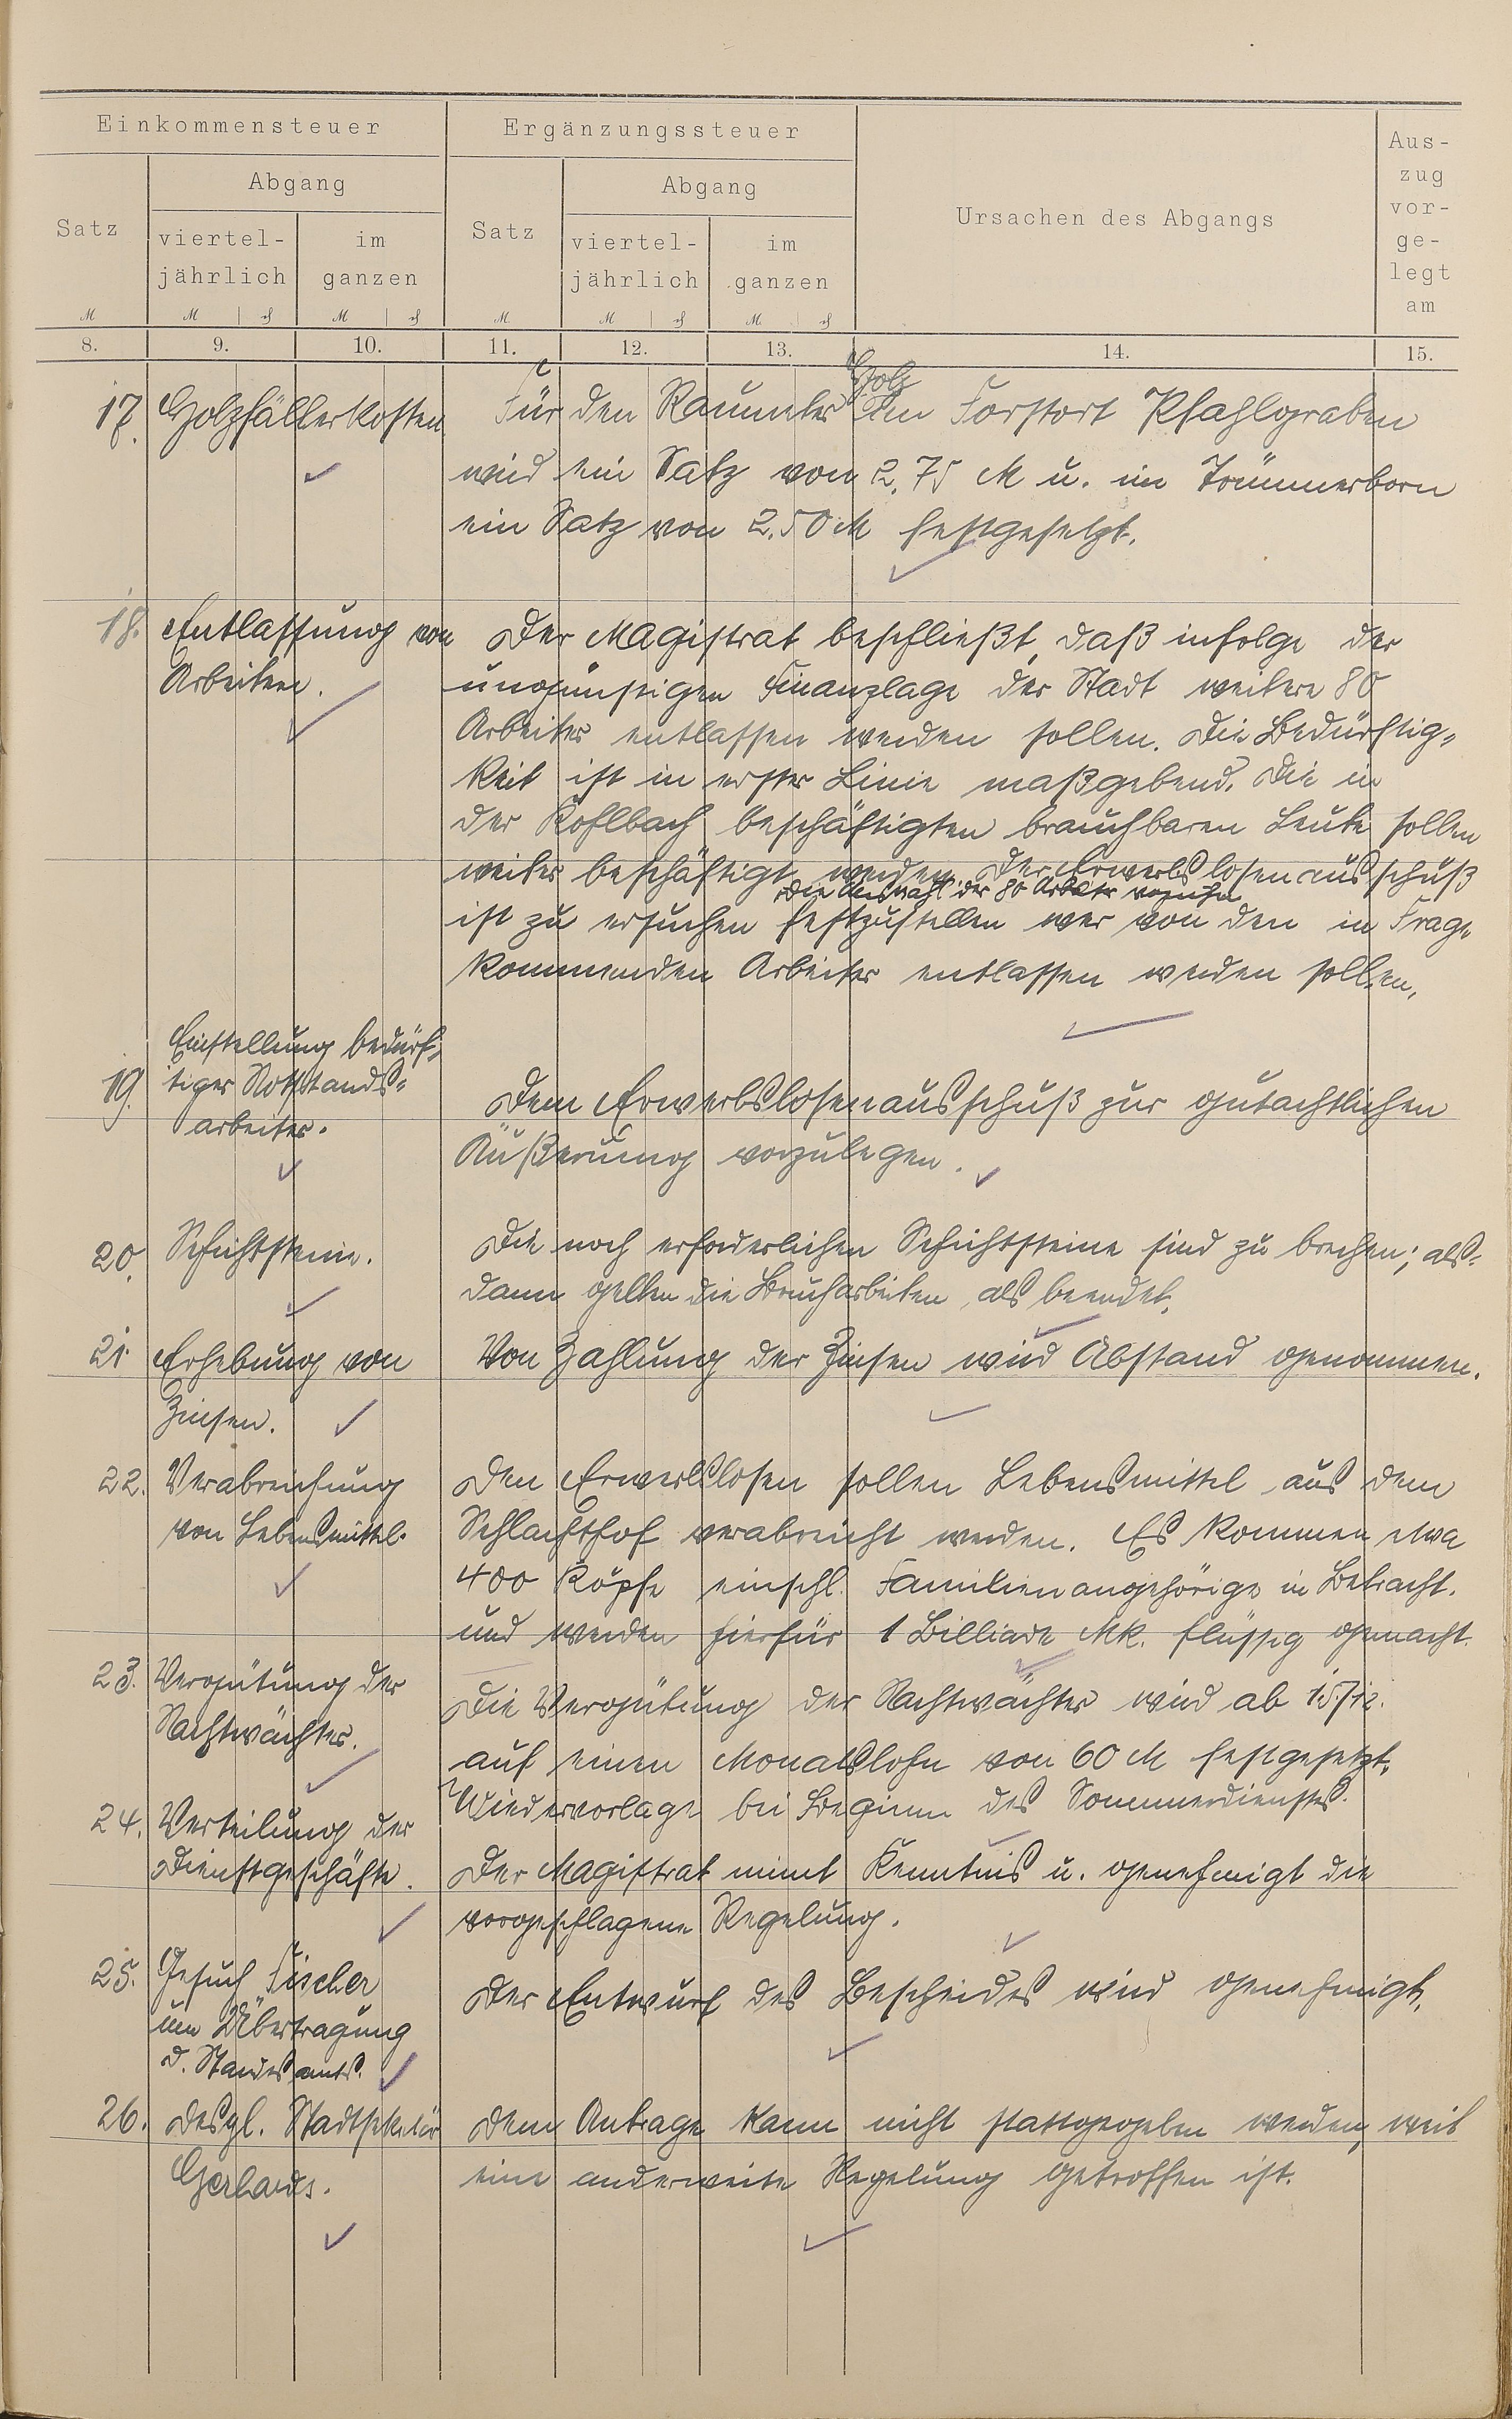 Einkommensteuer
Ergänzungssteuer
Ursachen des Abgangs
Aus-
zug
vor-
ge-
legt
am
Satz
Abgang
viertel-
jährlich
im
ganzen
Satz
Abgang
viertel-
jährlich
im
ganzen
M
M
₰
M
₰
M.
M
₰
M.
₰
8.
9.
10.
11.
12.
13.
14.
15.
17. Holzfällerkosten
Holz
Für den Raumeter Im Forstort Pfahlgraben
wird ein Satz von 2,75 M u. im Trümmerborn
ein Satz von 2.50 M festgesetzt.
18. Entlassung von
Arbeitern.
Der Magistrat beschließt, daß infolge der
ungünstigen Finanzlage der Stadt weitere 80
Arbeiter entlassen werden sollen. Die Bedürftig-
keit ist in erster Linie maßgebend. Die in
der Kohlbach beschäftigten brauchbaren Leute sollen
weiter beschäftigt werden. Der Erwerbslosenausschuß
die Auswahl der 80 Arbeiter
ist zu ersuchen festzustellen wer von den in Frage
kommenden Arbeiter entlassen werden sollen.
19. Einstellung bedürf-
tiger Notstands-
arbeiter.
Dem Erwerbslosenausschuß zur gutachtlichen
Äußerung vorzulegen.
20. Schichtsteine.
Die noch erforderlichen Schichtsteine sind zu brechen; als-
dann gelten die Brucharbeiten als beendet.
21. Erhebung von
Zinsen.
Von Zahlung der Zinsen wird Abstand genommen.
22. Verabreichung
von Lebensmittel.
Den Erwerbslosen sollen Lebensmittel aus dem
Schlachthof verabreicht werden. Es kommen etwa
400 Köpfe einschl. Familienangehörige in Betracht.
und werden hierfür 1 Billiarde Mk. flüssig gemacht.
23. Vergütung der
Nachtwächter.
Die Vergütung der Nachtwächter wird ab 15/12.
auf einen Monatslohn von 60 M festgesetzt.
Wiedervorlage bei Beginn des Sommerdienstes.
24. Verteilung der
Dienstgeschäfte.
Der Magistrat nimt Kenntnis u. genehmigt die
vorgeschlagene Regelung.
25. Gesuch Fischer
um Übertragung
d. Standesamts.
Der Entwurf des Bescheides wird genehmigt.
26. desgl. Stadtsekretär
Gerhards.
Dem Antrage kann nicht stattgegeben werden, weil
eine anderweite Regelung getroffen ist.